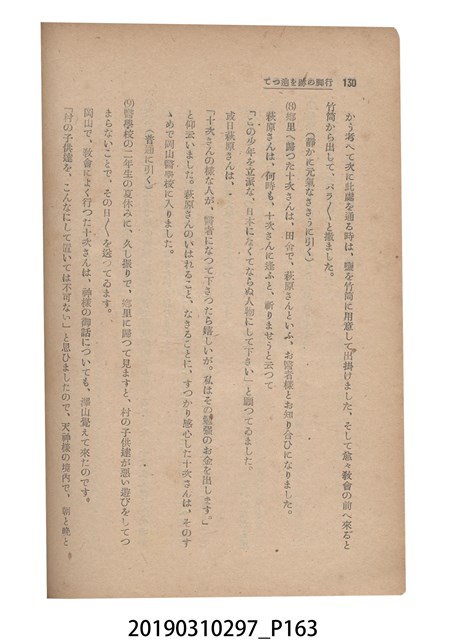 130 行脚の跡を追つて
かう考へて次に此處を通る時は、鹽を竹筒に用意して出掛けました、そして愈々敎會の前へ來ると
竹筒から出して、バラ〳〵と撒ました。
(靜かに元氣なささうに引く)
(8)鄕里へ歸つた十次さんは、田舍で、萩原さんといふ、お醫者樣とお知り合ひになりました。
萩原さんは、何時も、十次さんに逢ふと、祈りませうと云つて
「この少年を立派な、日本になくてならぬ人物にして下さい」と願つてゐました。
或日萩原さんは、
「十次さんの樣な人が、醫者になつて下さつたら嬉しいが。私はその勉强のお金を出します。」
と仰云いました。萩原さんのいはれること、なさることに、すつかり感心した十次さんは、そのす
ゝめで岡山醫學校に入りました。
(普通に引く)
(9)醫學校の二年生の夏休みに、久し振りで、鄕里に歸つて見ますと、村の子供達が惡い遊びをしてつ
まらないことで、その日〳〵を送つてゐます。
岡山で、敎會によく行つた十次さんは、神樣の御話についても、澤山覺えて來たのです。
「村の子供達を、こんなにして置いては不可ない」と思ひましたので、天神樣の境內で、朝と晩と
20190310297_P163